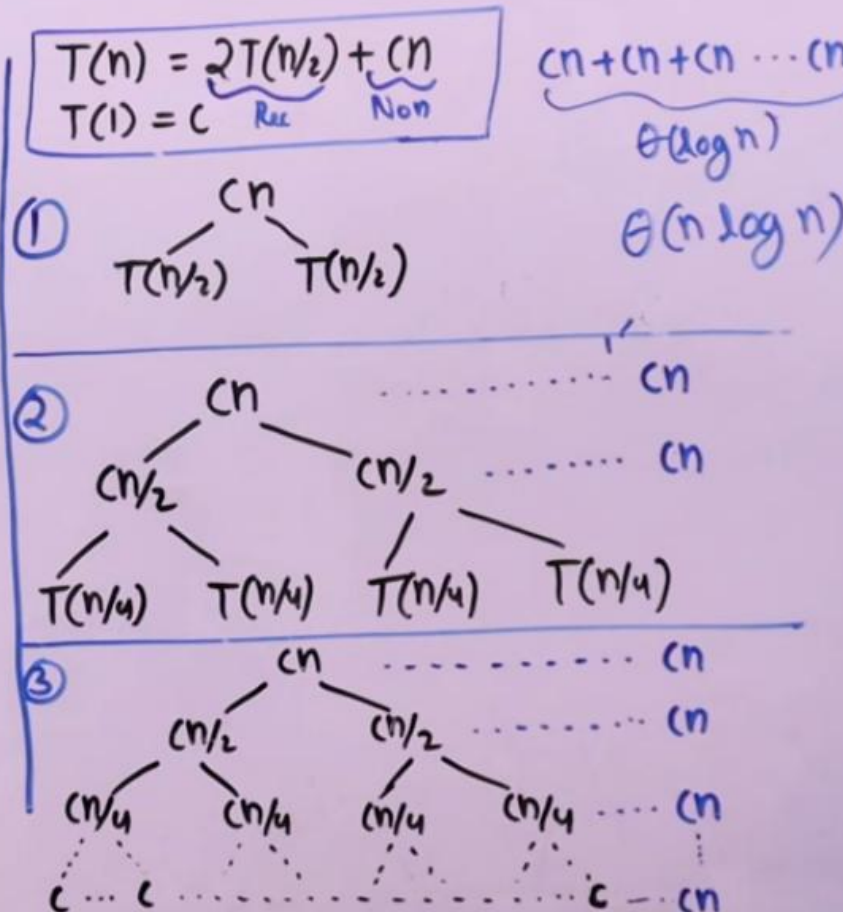 T(n) = 2T(n/2) + Cn
Rec Non
T(1) = C
Cn+Cn+Cn ... Cn
θ(log n)
θ(n log n)
①
Cn
T(n/2) T(n/2)
②
Cn ............ Cn
Cn/2 Cn/2 ........ Cn
T(n/4) T(n/4) T(n/4) T(n/4)
③
Cn ............ Cn
Cn/2 Cn/2 ........ Cn
Cn/4 Cn/4 Cn/4 Cn/4 .... Cn
C ... C .................... C ... Cn